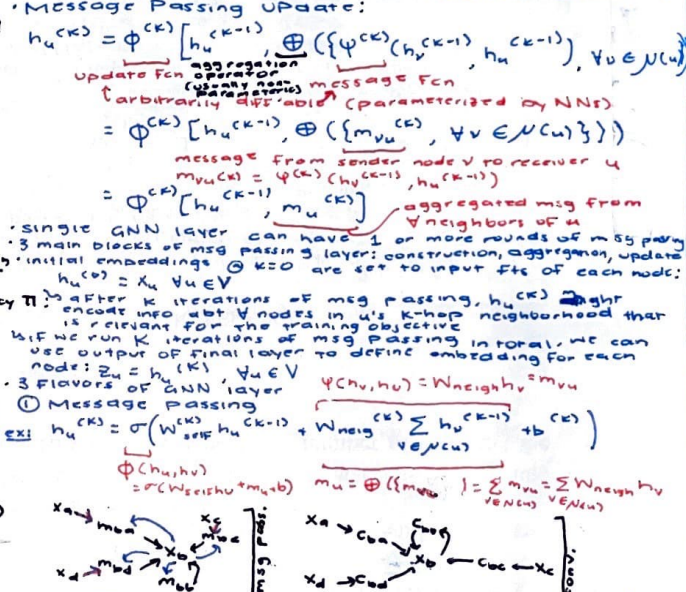 • Message Passing Update:
hu^(k) = Φ^(k) [hu^(k-1), ⊕ ({ψ^(k) (hv^(k-1), hu^(k-1)), ∀v ∈ N(u)
update fcn aggregation operator (usually non-parametric) message fcn
arbitrarily diff'able (parameterized by NNs)
= Φ^(k) [hu^(k-1), ⊕ ({mvu^(k), ∀v ∈ N(u)}})
message from sender node v to receiver u
mvu^(k) = ψ^(k) (hv^(k-1), hu^(k-1))
= Φ^(k) [hu^(k-1), mu^(k)]
aggregated msg from
∀ neighbors of u
• single GNN layer can have 1 or more rounds of msg passing
• 3 main blocks of msg passing layer: construction, aggregation, update
• initial embeddings @ k=0 are set to input fts of each node:
hu^(0) = xu ∀u ∈ V
after k iterations of msg passing, hu^(k) might
encode info abt ∀ nodes in u's k-hop neighborhood that
is relevant for the training objective
if we run K iterations of msg passing in total, we can
use output of final layer to define embedding for each
node: zu = hu^(K), ∀u ∈ V
• 3 Flavors of GNN layer
ψ(hv, hu) = Wneigh hv = mvu
① Message passing
ex: hu^(k) = σ(Wself^(k) hu^(k-1) + Wneig^(k) Σ v∈N(u) hv^(k-1) + b^(k))
Φ(hu, hv)
= σ(Wself hu + mu + b)
mu = ⊕ ({mvu }) = Σ v∈N(u) mvu = Σ v∈N(u) Wneigh hv
xa mba xc mbc xb
xd mbd mbb
msg pass.
xa cba cbb
xb cbc xc
xd cbd
conv.